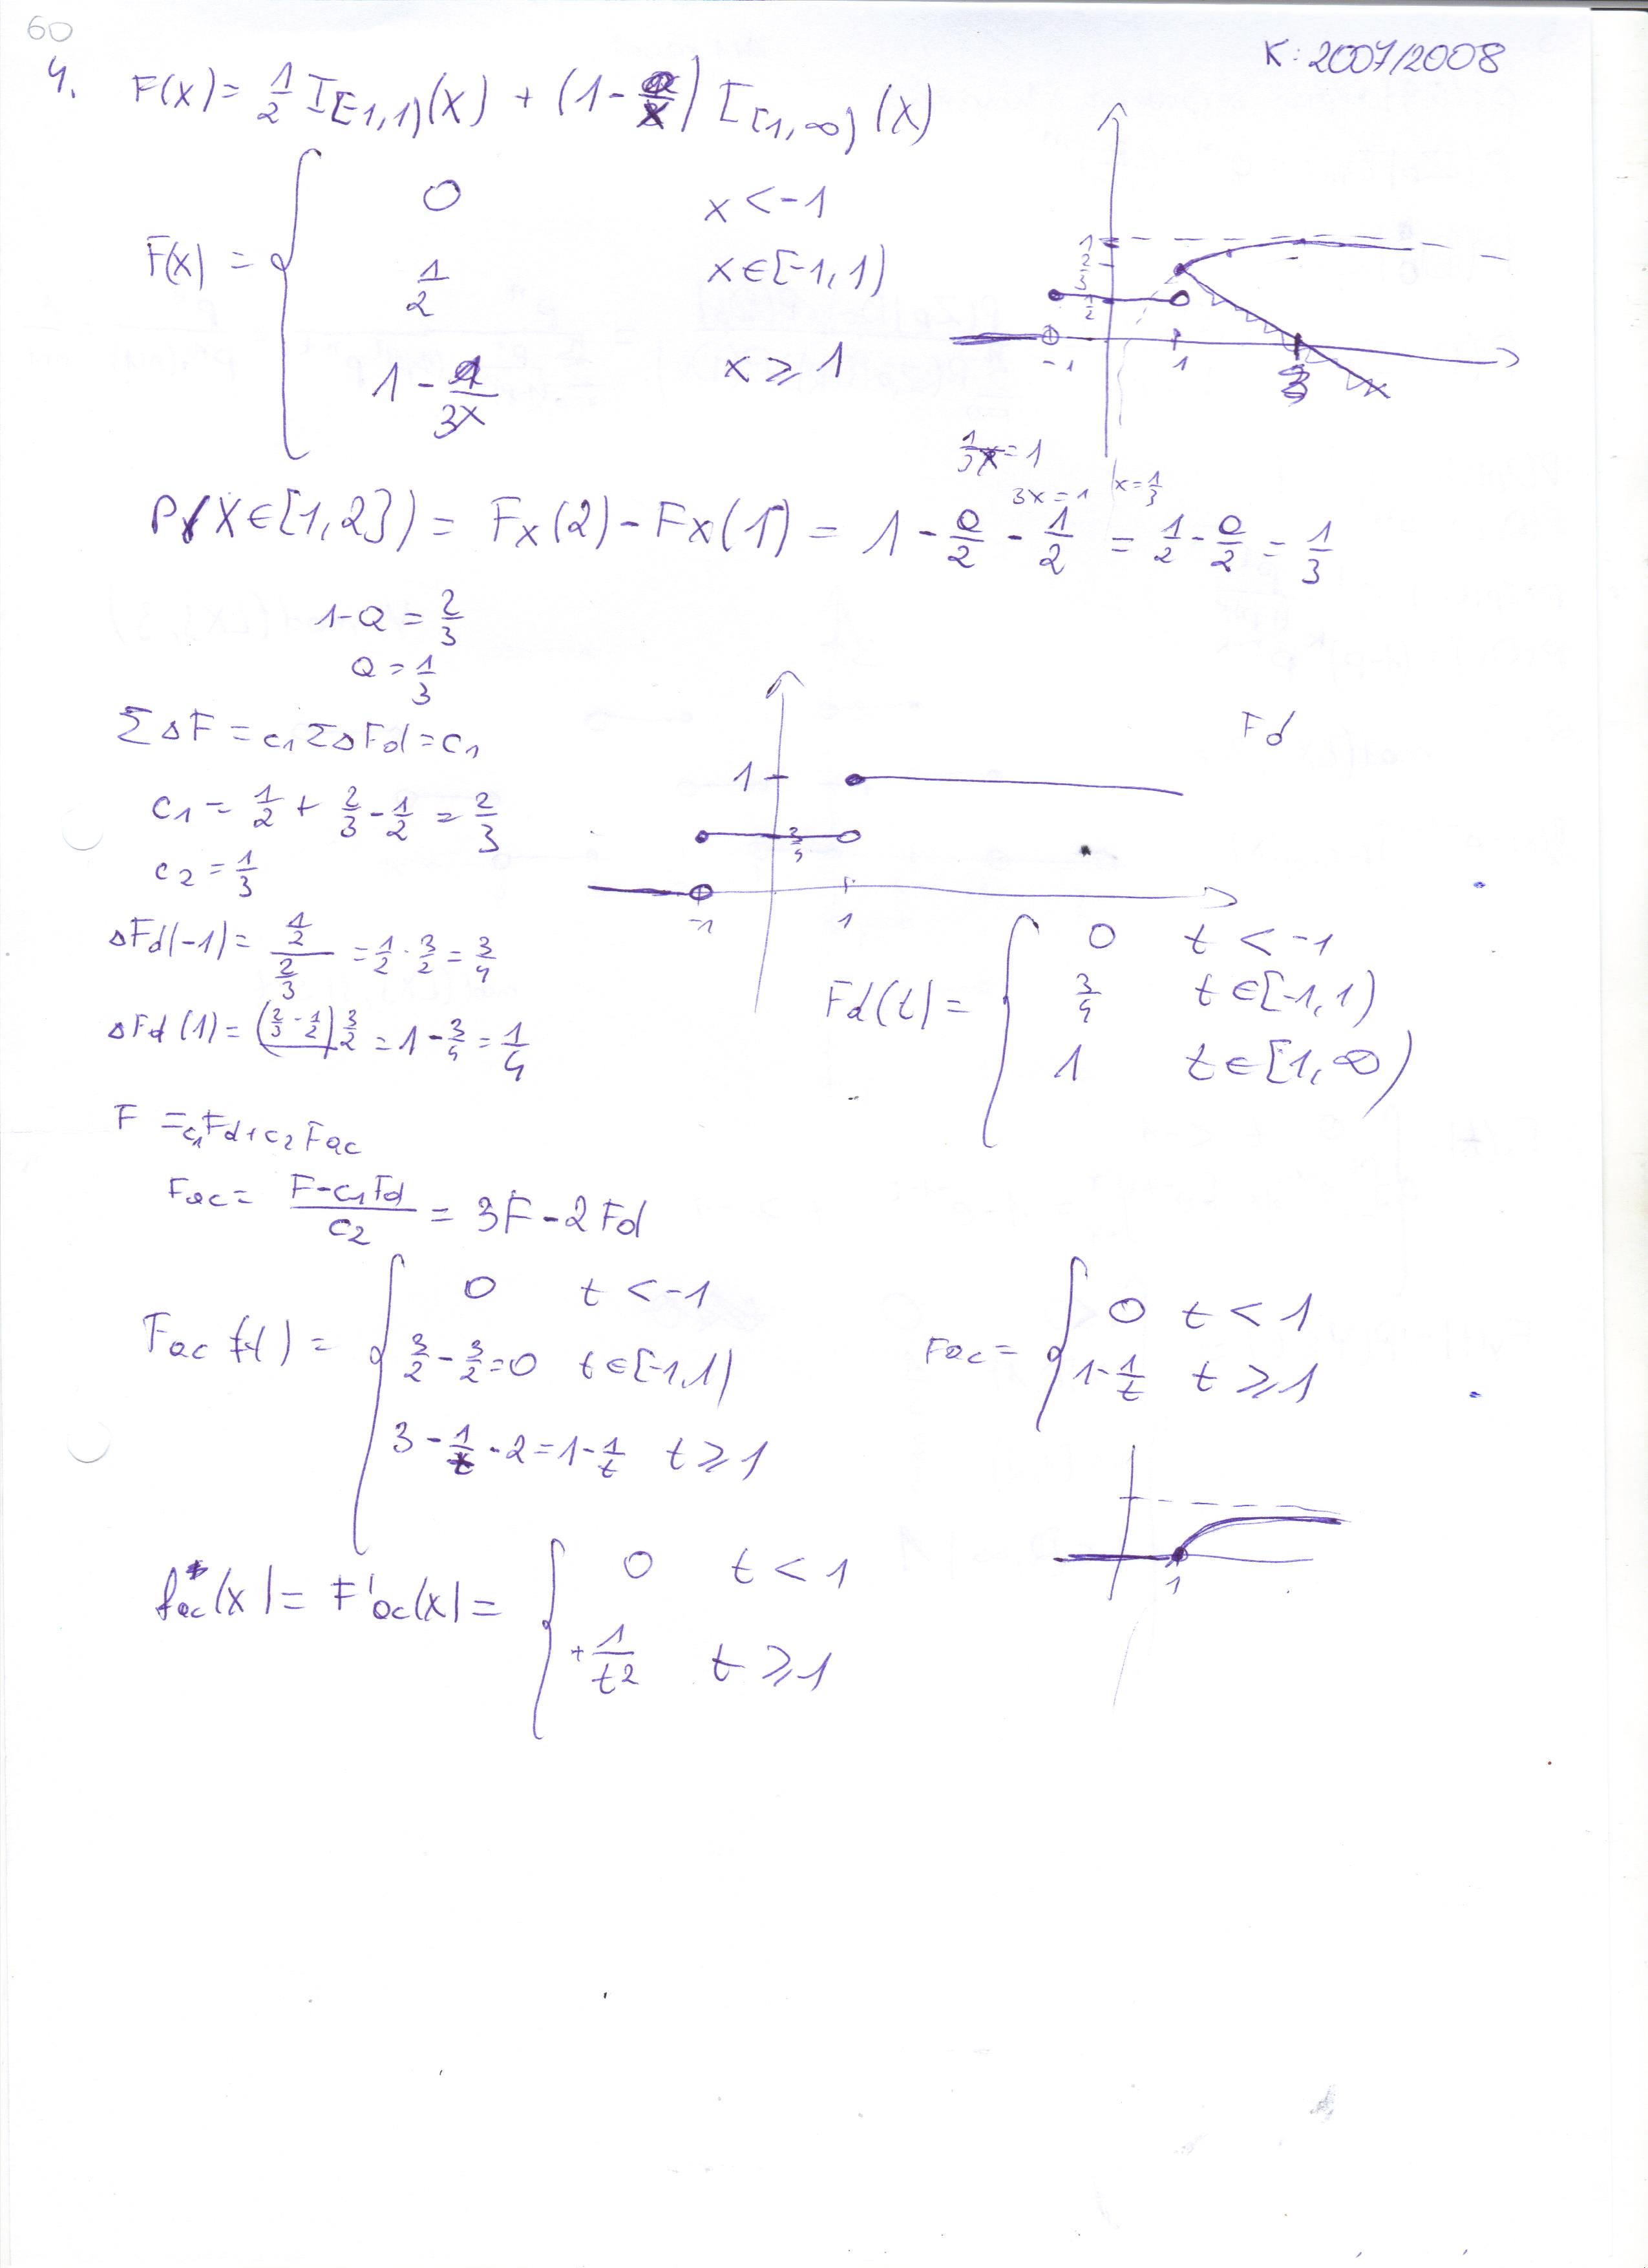 60
K: 2007/2008
4. F(x) = 1/2 I[-1,1)(x) + (1 - a/x) I[1,∞)(x)
F(x) = { 0 x < -1
1/2 x ∈ [-1,1)
1 - 1/3x x ⩾ 1
1
2/3
1/2
-1 1 3
1/3x = 1
3x = 1 | x = 1/3
P(X ∈ [1,2]) = Fx(2) - Fx(1) = 1 - a/2 - 1/2 = 1/2 - a/2 = 1/3
1 - a = 2/3
a = 1/3
Σ ΔF = c1 Σ Δ Fd = c1
c1 = 1/2 + 2/3 - 1/2 = 2/3
c2 = 1/3
Fd
1
3/4
-1 1
ΔFd(-1) = 1/2 / 2/3 = 1/2 · 3/2 = 3/4
ΔFd(1) = (2/3 - 1/2) 3/2 = 1 - 3/4 = 1/4
Fd(t) = { 0 t < -1
3/4 t ∈ [-1,1)
1 t ∈ [1,∞)
F = c1 Fd + c2 Fac
Fac = F - c1 Fd / c2 = 3F - 2Fd
Fac(t) = { 0 t < -1
3/2 - 3/2 = 0 t ∈ [-1,1)
3 - 1/t - 2 = 1 - 1/t t ⩾ 1
Fac = { 0 t < 1
1 - 1/t t ⩾ 1
1
fac(x) = F'ac(x) = { 0 t < 1
+ 1/t2 t ⩾ 1